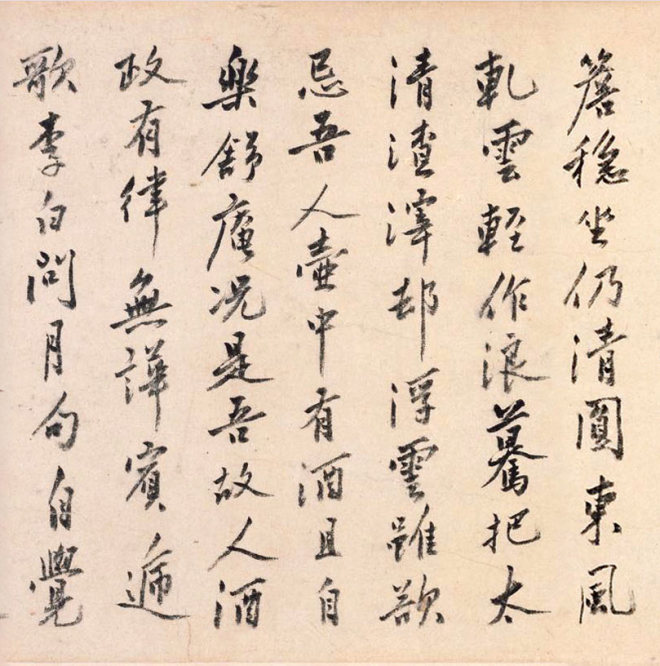 簷穩坐仍清圓東風
軋雲輕作浪驀把太
清渣滓却浮雲雖欲
忌吾人壺中有酒且自
樂舒庵況是吾故人酒
政有律無譁賓遞
歌李白問月句自覺